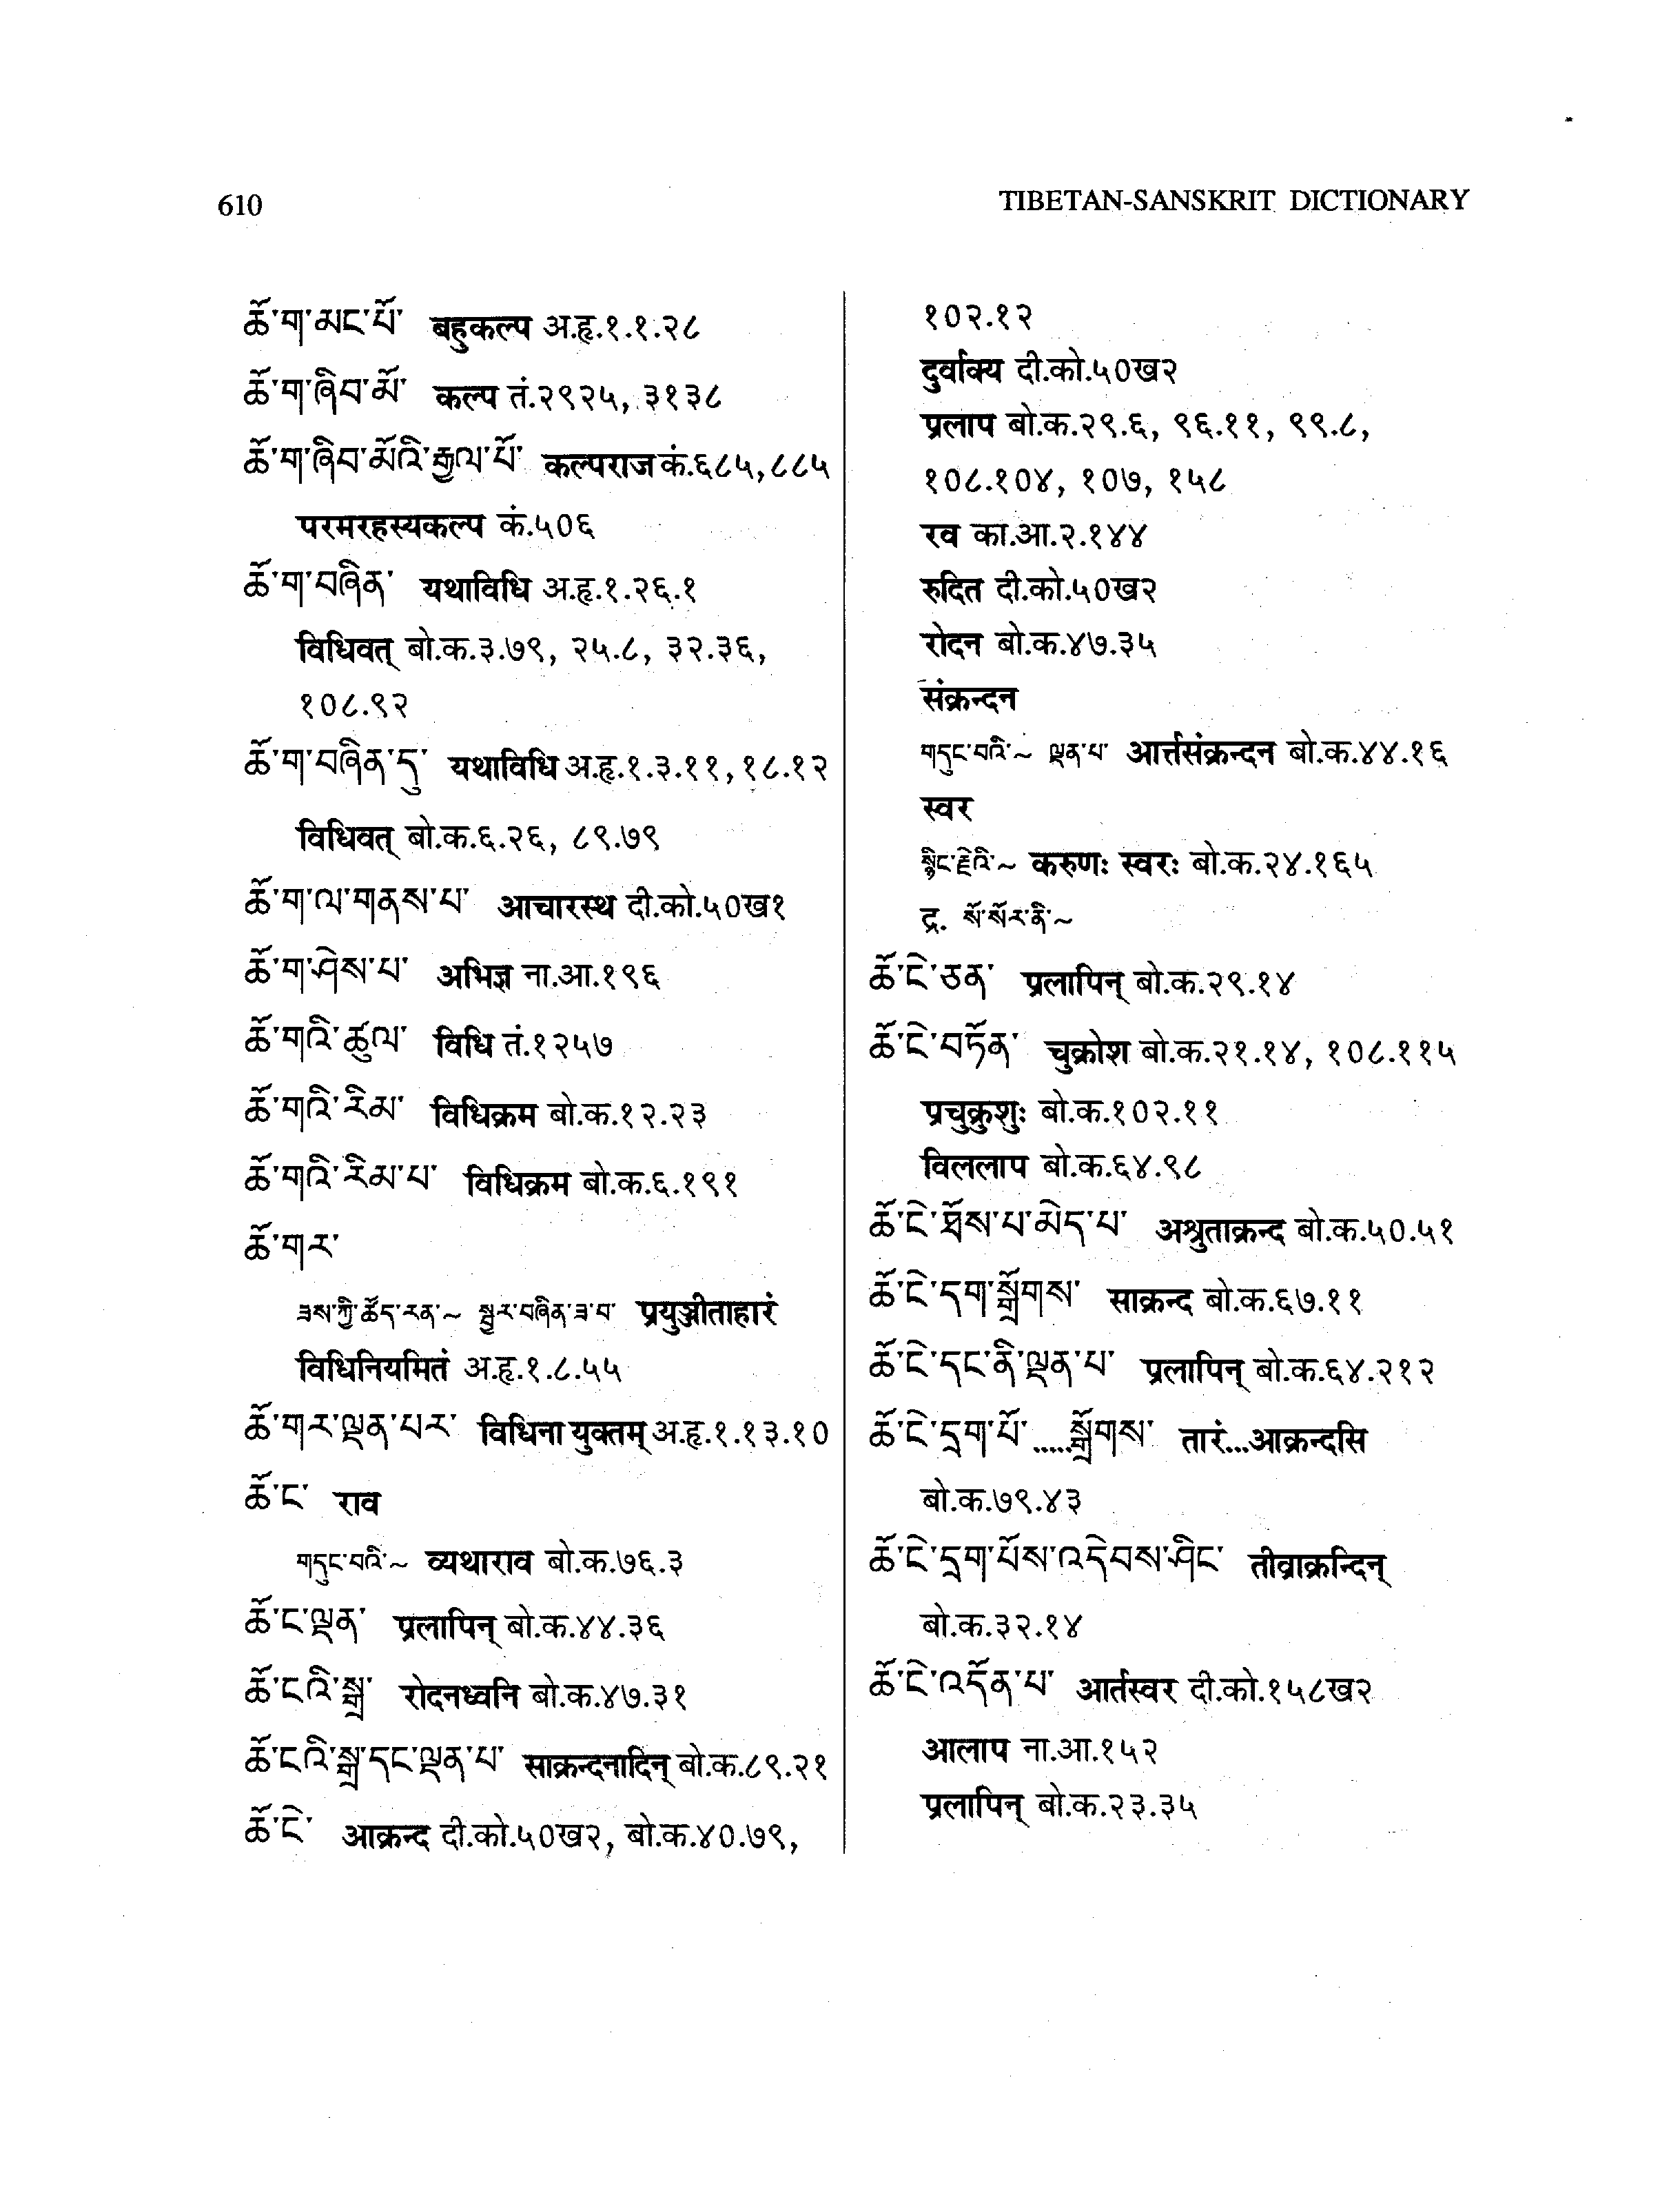 610
TIBETAN-SANSKRIT DICTIONARY
ཆོ་ག་མང་པོ་ बहुकल्प अ.हृ.१.१.२८
ཆོ་ག་ཞིབ་མོ་ कल्प तं.२९२५, ३१३८
ཆོ་ག་ཞིབ་མོའི་རྒྱལ་པོ་ कल्पराज कं.६८५,८८५
परमरहस्यकल्प कं.५०६
ཆོ་ག་བཞིན་ यथाविधि अ.हृ.१.२६.१
विधिवत् बो.क.३.७९, २५.८, ३२.३६,
१०८.९२
ཆོ་ག་བཞིན་དུ་ यथाविधि अ.हृ.१.३.११,१८.१२
विधिवत् बो.क.६.२६, ८९.७९
ཆོ་ག་ལ་གནས་པ་ आचारस्थ दी.को.५०ख१
ཆོ་ག་ཤེས་པ་ अभिज्ञ ना.आ.१९६
ཆོ་གའི་ཚུལ་ विधि तं.१२५७
ཆོ་གའི་རིམ་ विधिक्रम बो.क.१२.२३
ཆོ་གའི་རིམ་པ་ विधिक्रम बो.क.६.१९१
ཆོ་གར་
ཟས་ཀྱི་ཚོད་རན་~ སྦྱར་བཞིན་ཟ་བ་ प्रयुञ्जीताहारं
विधिनियमितं अ.हृ.१.८.५५
ཆོ་གར་ལྡན་པར་ विधिना युक्तम् अ.हृ.१.१३.१०
ཆོ་ང་ राव
གདུང་བའི་~ व्यथाराव बो.क.७६.३
ཆོ་ང་ལྡན་ प्रलापिन् बो.क.४४.३६
ཆོ་ངའི་སྒྲ་ रोदनध्वनि बो.क.४७.३१
ཆོ་ངའི་སྒྲ་དང་ལྡན་པ་ साक्रन्दनादिन् बो.क.८९.२१
ཆོ་ངེ་ आक्रन्द दी.को.५०ख२, बो.क.४०.७९,
१०२.१२
दुर्वाक्य दी.को.५०ख२
प्रलाप बो.क.२९.६, ९६.११, ९९.८,
१०८.१०४, १०७, १५८
रव का.आ.२.१४४
रुदित दी.को.५०ख२
रोदन बो.क.४७.३५
संक्रन्दन
གདུང་བའི་~ ལྡན་པ་ आर्त्तसंक्रन्दन बो.क.४४.१६
स्वर
སྙིང་རྗེའི་~ करुणः स्वरः बो.क.२४.१६५
द्र. སོ་སོར་ནི་~
ཆོ་ངེ་ཅན་ प्रलापिन् बो.क.२९.१४
ཆོ་ངེ་བཏོན་ चुक्रोश बो.क.२१.१४, १०८.११५
प्रचुक्रुशुः बो.क.१०२.११
विललाप बो.क.६४.९८
ཆོ་ངེ་ཐོས་པ་མེད་པ་ अश्रुताक्रन्द बो.क.५०.५१
ཆོ་ངེ་དག་སྒྲོགས་ साक्रन्द बो.क.६७.११
ཆོ་ངེ་དང་ནི་ལྡན་པ་ प्रलापिन् बो.क.६४.२१२
ཆོ་ངེ་དྲག་པོ་.....སྒྲོགས་ तारं...आक्रन्दसि
बो.क.७९.४३
ཆོ་ངེ་དྲག་པོས་འདེབས་ཤིང་ तीव्राक्रन्दिन्
बो.क.३२.१४
ཆོ་ངེ་འདོན་པ་ आर्तस्वर दी.को.१५८ख२
आलाप ना.आ.१५२
प्रलापिन् बो.क.२३.३५